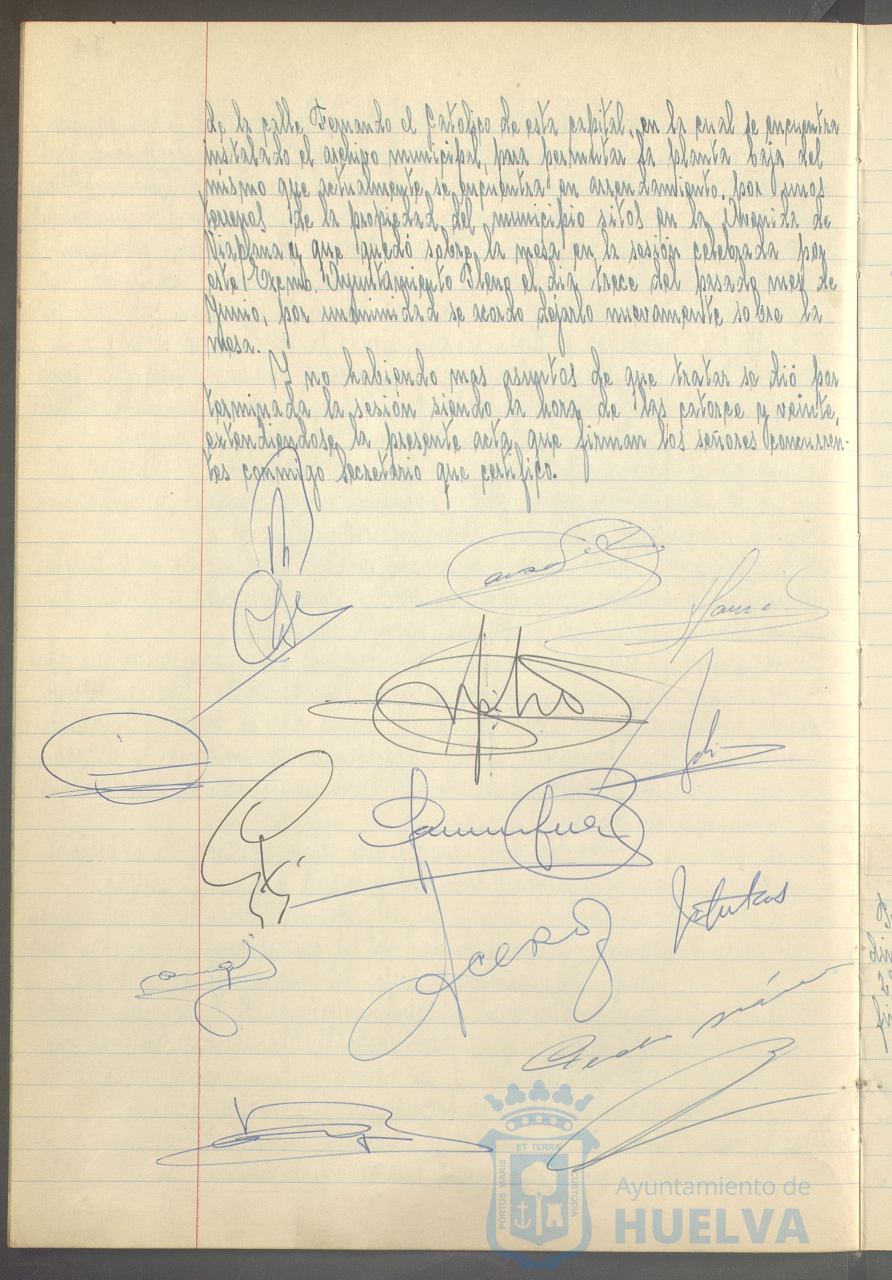 de la calle Fernando el Católico de esta capital, en la cual se encuentra
instalado el archivo municipal, para permutar la planta baja del
mismo que actualmente se encuentra en arrendamiento, por unos
terrenos de la propiedad del municipio sitos en la Avenida de
Viaplana y que quedó sobre la mesa en la sesión celebrada por
este Excmo. Ayuntamiento Pleno el dia trece del pasado mes de
Junio, por unanimidad se acordo dejarlo nuevamente sobre la
mesa.
Y no habiendo mas asuntos de que tratar se dió por
terminada la sesión siendo la hora de las catorce y veinte,
extendiendose la presente acta que firman los señores concurren-
tes conmigo Secretario que certifico.
Acero
ET TERRA
PORTUS MARIS
CUSTODIA
Ayuntamiento de
HUELVA